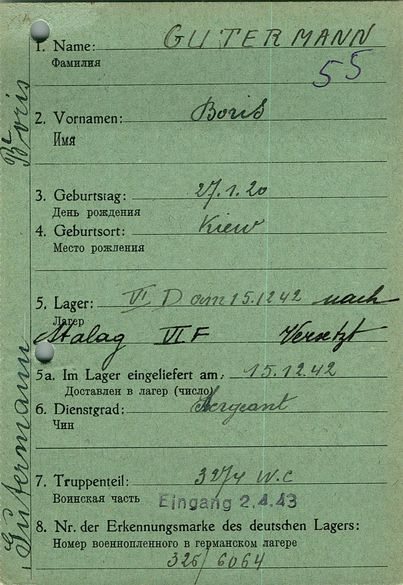 1. Name: GUTERMANN
Фамилия
55
2. Vornamen: Boris
Имя
3. Geburtstag: 27.1.20
День рождения
4. Geburtsort: Kiew
Место рожления
5. Lager: VI D am 15.12 42 nach
Лагер
Stalag VI F Versetzt
5a. Im Lager eingeliefert am: 15.12.42
Доставлен в лагер (число)
6. Dienstgrad: Sergeant
Чин
7. Truppenteil: 3274 W.C
Воинская часть
Eingang 2.4.43
8. Nr. der Erkennungsmarke des deutschen Lagers:
Номер военнопленного в германском лагере
326/6064
Gutermann Boris